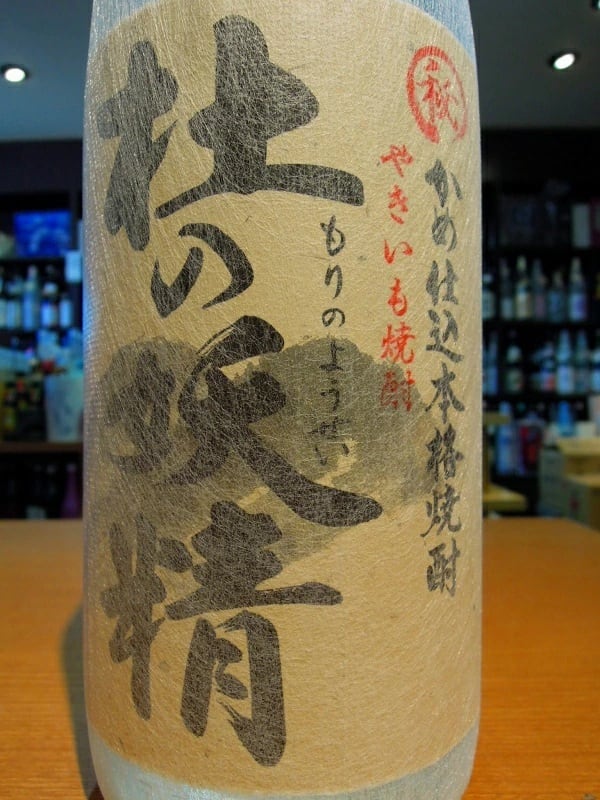 秘
かめ仕込本格焼酎
やきいも焼酎
もりのようせい
杜の妖精